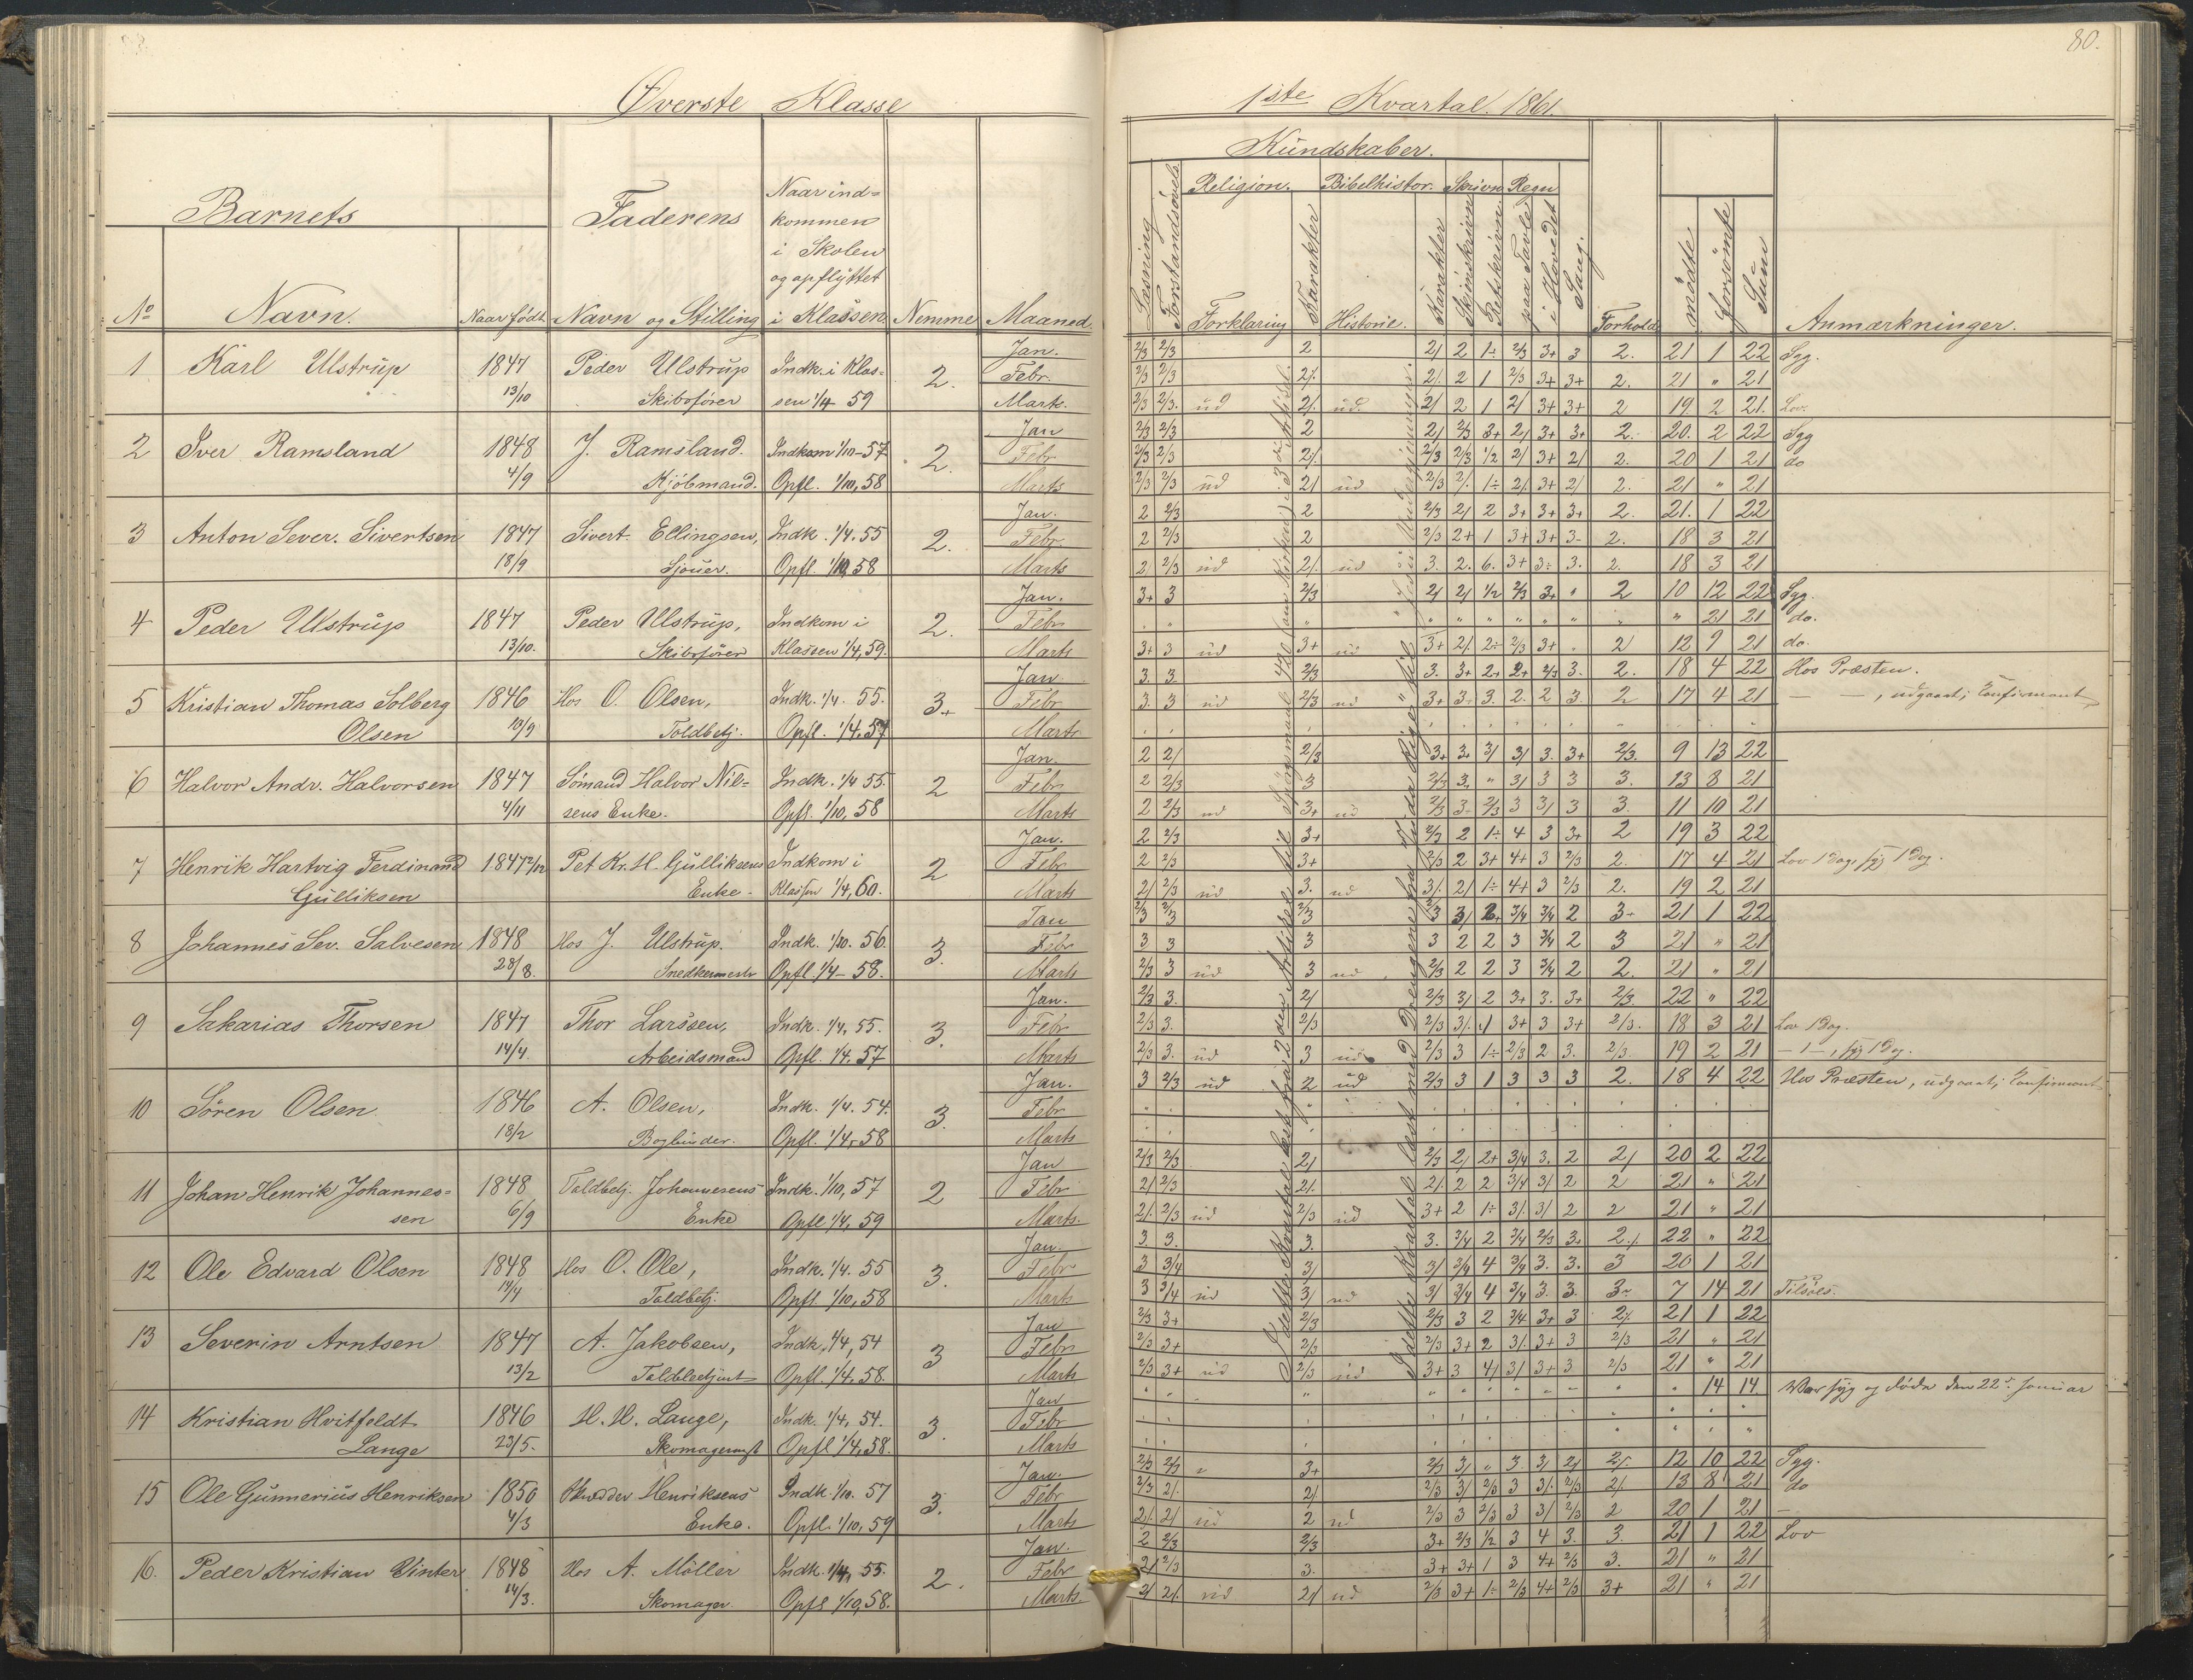 80.
Øverste Klasse
1ste Kvartal. 1861.
Barnets
Faderens
Naar ind=
kommen
i Skolen
og opflyttet
i Klassen
No Navn. Naar født Navn og Stilling Nemme Maaned.
Kundskaber.
Læsning
Forstandsøvels.
Religion. Bibelhistor. Skrivn. Regn
Forklaring Karakter Historie. Karakter Skjønskrivn Retskrivn. paa Tavle i Hovedet Sang.
Forhold mødte Forsømte Sum Anmærkninger.
1 Karl Ulstrup 1847 Peder Ulstrup Indk. i Klas= 2. Jan.
Febr.
13/10 Skibsfører sen 1/4 59 Marts.
2 Iver Ramsland 1848 J. Ramsland. Indkom 1/10-57 2. Jan
Febr
4/9 Kjøbmand. Opfl. 1/10, 58 Marts
3 Anton Sever. Sivertsen 1847 Sivert Ellingsen, Indk. 1/4. 55 2. Jan.
Febr.
18/9 Sjouer. Opfl. 1/10, 58 Marts
4 Peder Ulstrup 1847 Peder Ulstrup, Indkom i 2. Jan.
Febr
13/10. Skibsfører Klassen 1/4, 59. Marts
5 Kristian Thomas Solberg 1846 Hos O. Olsen, Indk. 1/4. 55. 3+ Jan
Febr
Olsen 13/9 Toldbetj. Opfl. 1/4. 57 Marts
6 Halvor Andr. Halvorsen 1847 Sømand Halvor Nil= Indk. 1/4 55. 2 Jan.
Febr
4/11 sens Enke. Opfl. 1/10, 58 Marts
7 Henrik Hartvig Ferdinand 1847 2/12 Pet Kr. H. Gulliksens Indkom i 2 Jan.
Febr
Gulliksen Enke. Klassen 1/4, 60. Marts
8 Johannes Sev. Salvesen 1848 Hos J. Ulstrup. Indk. 1/10. 56. 3. Jan
Febr
28/8. Snedkermestr Opfl. 1/4- 58. Marts
9 Sakarias Thorsen 1847 Thor Larssen, Indk. 1/4, 55. 3. Jan.
Febr
14/4. Arbeidsmand Opfl. 1/4. 57 Marts
10 Søren Olsen 1846 A. Olsen, Indk. 1/4. 54. 3. Jan.
Febr
18/2 Bogbinder. Opfl. 1/4, 58 Marts
11 Johan Henrik Johannes= 1848 Toldbetj. Johannesens Indk. 1/10, 57 2 Jan
Febr
sen 6/9 Enke Opfl 1/4, 59 Marts.
12 Ole Edvard Olsen 1848 Hos O. Ole, Indk. 1/4. 55 3. Jan.
Febr
14/4 Toldbetj. Opfl. 1/10, 58 Marts
13 Severin Arntsen 1847 A. Jakobsen, Indk. 1/4, 54 3 Jan
Febr
13/2 Toldbetjent Opfl. 1/4. 58. Marts
14 Kristian Hvitfeldt 1846 H. H. Lange, Indk. 1/4, 54. 3. Jan
Febr
Lange 23/5. Opfl 1/4, 58. Marts
15 Ole Gunnerius Henriksen 1850 Henriksens Indk. 1/10. 57 3. Jan.
Febr
4/3 Enke. Opfl. 1/10, 59 Marts
16. Peder Kristian Winter 1848 Hos A. Möller Indk. 1/4, 55. 2. Jan.
Febr
14/3. Skomager. Opfl 1/10, 58. Marts.
2/3 2/3 2 2/ 2 1÷ 2/3 3+ 3 2. 21 1 22 Syg.
2/3 2/3 2/. 2/. 2 1 2/3 3+ 3+ 2. 21 " 21
2/3 2/3. ud 2/. ud. 2/ 2 1 2/ 3+ 3+ 2 19 2 21. Lov.
2/3 2/3 2 2/ 2/3 3+ 2/ 3+ 3+ 2. 20. 2 22 Syg
2/3 2/3 2/. 2/3 2/3 1/2 2/ 3+ 2/ 2. 20 1 21 do
2/3 2/3 ud 2/ ud 2/3 2/. 1÷ 2/. 3+ 2/ 2. 21 " 21
2 2/3 2 2/3 2/ 2 3+ 3+ 3+ 2. 21. 1 22
2 2/3 2 2/3 2+ 1 3+ 3+ 3- 2. 18 3 21
2/ 2/3 ud 2/. ud 3. 2. 6. 3+ 3÷ 3. 2. 18 3 21
3+ 3 2/3 2/ 2/ 1/2 2/3 3+ " 2 10 12 22 Syg.
" 21 21 do.
3+ 3 ud 3+ ud 3+ 2/. 2÷ 2/3 3+ 2/ 12 9 21 do.
3. 3. 2/3 3. 3+ 2+ 2+ 2/3 3. 2. 18 4 22 Hos Præsten.
3. 3 ud 2/3 ud 3+ 3+ 3. 2. 2 3. 2 17 4 21 — —, udgaaet; Confirmant
2 2/ 2/3 3+ 3+ 3/ 3/ 3. 3+ 2/3. 9 13 22
2 2/3 3 2/3 3. " 3/ 3 3 3. 13 8 21
2 2/3 ud 3+ ud 2/3 3- 2/3 3 3/ 3 3. 11 10 21
2 2/3 3+ 2/3 2 1÷ 4 3 3+ 2 19 3 22
2 2/3 3+ 2/3 2 3+ 4+ 3 2/3 2. 17 4 21 Lov 1 Dag, syg 1 Dag.
2/ 2/3 ud 3. ud 3/. 2/ 1÷ 4+ 3 2/3 2. 19 2 21
2/3 2/3 2/3 2/3 3/ 2+ 3/4 3/4 2 3+ 21 1 22
3 3 3 3 2 2 3 3/4 2 3 21 " 21
2/3 3 ud 3 ud 2/3 2 2 3 3/4 2 2. 21 " 21
2/3 3. 2/ 2/3 3/ 2 3+ 3. 3+ 2/3. 22 " 22
2/3 3. 2/3 2/3 3/. 1 3+ 3 3+ 2/3. 18 3 21 Lov 1 Dag.
2/3 3. ud 3 ud. 2/3 3 1÷ 2/3 2 3. 2/3. 19 2 21 —1—, syg 1 Dg.
3 2/3 ud 2 ud 2/3 3 1 3 3 3 2. 18 4 22 Hos Præsten, udgaaet; Confirmant
2/3 2/3 2/ 2/3 2/ 2+ 3/4 3. 2 2/ 20 2 22
2/ 2/3 2/. 2/ 2 2 3/4 3/ 2 2 21 " 21
2/. 2/3 ud 2/3 ud 3+ 2 1÷ 3/. 3/ 2 2 21 " 21
3. 3. 3. 3. 3/4 2 3/4 2/3 3+ 2./ 22 " 22
3 3/4 3/ 3/ 3/4 4 3/4 3. 3. 3 20 1 21
3 3/4 ud 3/ ud 3/ 3/4 4 3/4 3. 3. 3~ 7 14 21 Tilsøes.
2/3 3+ 2/3 2/3 3 2 3/4 3+ 3 2/. 21 1 22
2/3 3+ 2/3 2/3 3+ 2 3/. 3+ 3 2/3 21 " 21
2/3 3+ ud 2/3 ud 3+ 3 4/ 3/ 3+ 3 2/3 21 " 21
14 14 Var syg og døde den 22d. Januar
2/3 2/3 " 3+ 2/3 3/ " 3. 3/ 2/ 2/. 12 10 22 Syg.
2/3 2/. 2/. 2/3 3/ 2/3 3 3/. 2/3 2/. 13 8 21 do
2/. 2/ ud 2 ud 2/3 3 2/3 3 3/ 2/3 2 20 1 21 —
2 2/3 2/3 3+ 2/3 1/2 3 4 3. 3. 21 1 22 Lov
2/ 2/3 3. 3+ 3+ 1 3 4+ 2/3 3. 21 " 21
2/ 2/. ud 2/ ud 2/3 3+ 1÷ 2/3 4+ 2/3 3+ 21 " 21
I dette Kvartal læst fra 2den Artikel til Spørgsmaal 420
I dette Kvartal læst med Drengene fra Juda Rige til Jesu Undergjerninger.